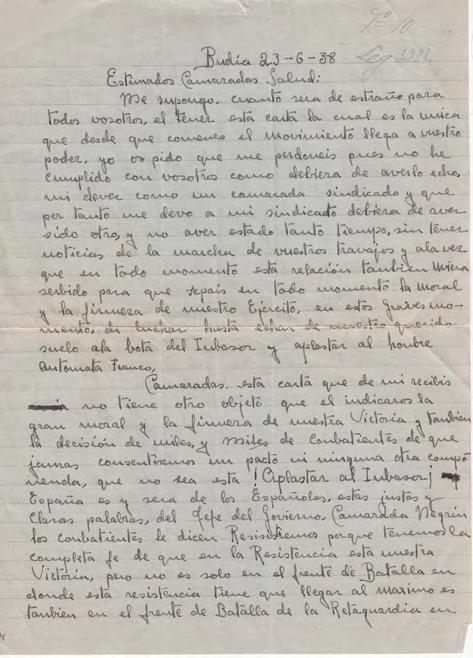 Budia 23-6-38
Estimados Camaradas Salud:
Me supongo, cuanto sera de estraño para
todos vosotros, el tener está carta la cual es la unica
que desde que comenzo el movimiento llega a vuestro
poder, yo os pido que me perdoneis pues no he
cumplido con vosotros como debiera de averlo echo,
mi dever como un camarada sindicado y que
por tanto me devo a mi sindicado debiera de aver
sido otro, y no aver estado tanto tiempo, sin tener
noticias de la marcha de vuestros travajos y ala vez
que en todo momento está relación tambien
serbido para que sepais en todo momento la moral
y la firmeza de nuestro Ejercito, en estos graves mo-
mentos, de luchar hasta echar de nuestro querido
suelo ala bota del Inbasor y aplastar al honbre
automata Franco,
Camaradas. está carta que de mi recibis
no tiene otro objetó que el indicaros la
gran moral y la firmeza de nuestra Victoria y tanbien
la decisión de miles, y Miles de Conbatientes de que
jamas consentiremos un pactó ni ninguna otra compo
nenda, que no sea esta ! Aplastar al Inbasor ¡
España es y sera de los Españoles, estas justas y
Claras palabras, del Jefe del Govierno, Camarada Negrin
los conbatientes le dicen Resistiremos porque tenemos la
completa fe de que en la Resistencia está nuestra
Victoria, pero no es solo en el frente de Batalla en
donde está resistencia tiene que llegar al maximo es
tanbien en el frente de Batalla de la Retaguardia en